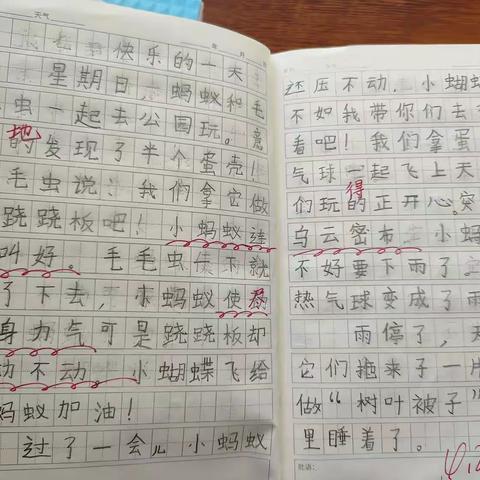 天气
快乐的一天
星期日，小蚂蚁和毛
虫一起去公园玩。意
地
的发现了半个蛋壳！
毛虫说：我们拿它做
跷跷板吧！小蚂蚁连
叫好。毛毛虫就
了下去，小蚂蚁使
身力气可是跷跷板却
动不动 小蝴蝶飞给
蚂蚁加油！
过了一会儿小蚂蚁
还压不动，小蝴
不如我带你们去
看吧！我们拿蛋
气球一起飞上天
得
们玩的正开心。突
乌云密布 小蚂
不好要下雨了
热气球变成了雨
雨停了，天
它们拖来子一片
做“树叶被子”
里睡着了。
批语：